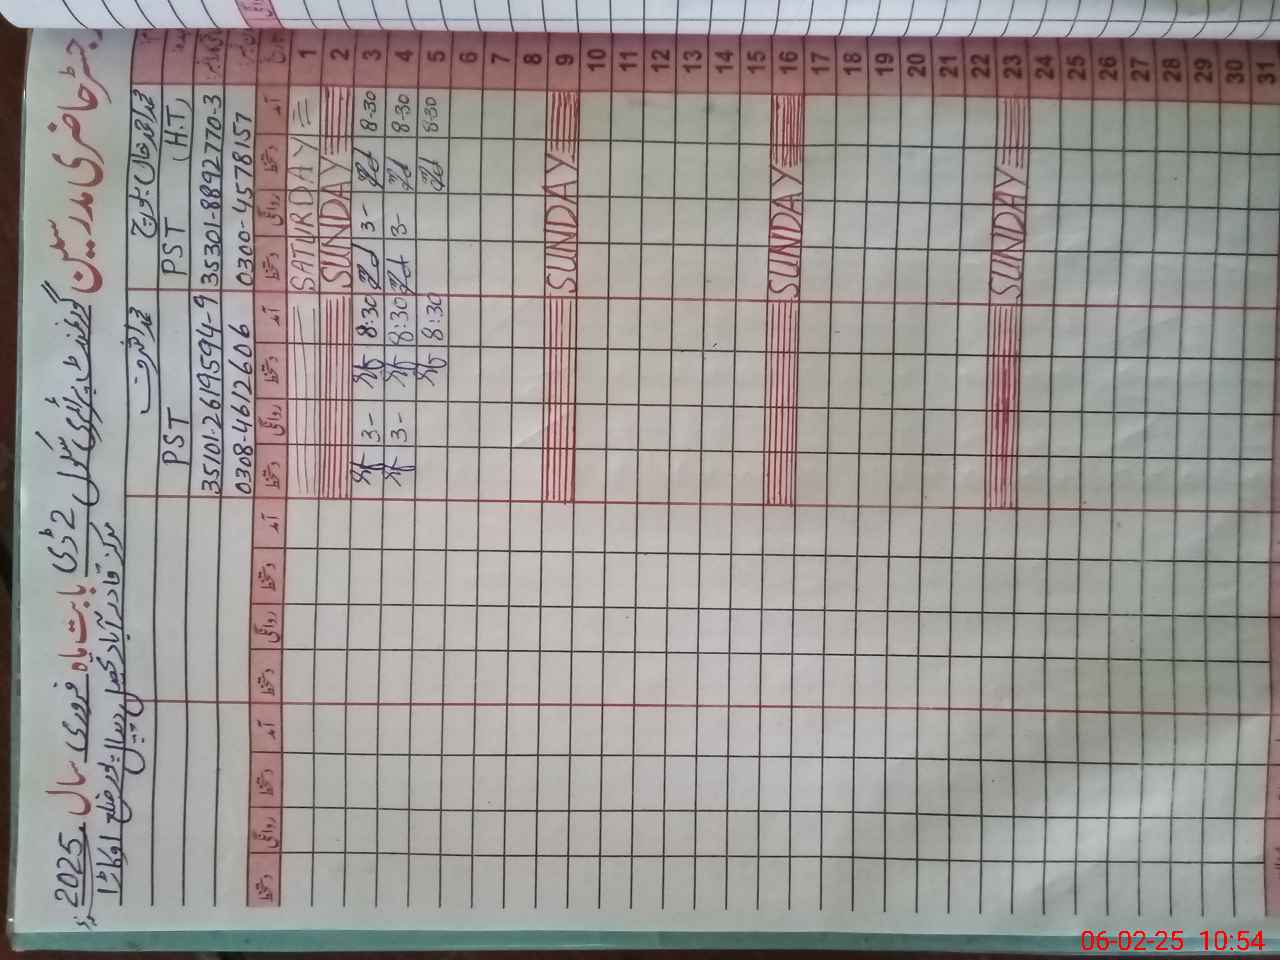 رجسٹر حاضری مدرسین گورنمنٹ پرائمری سکول 2 ڈی بابت ماہ فروری سال 2025ء
مرکز قادر آباد تحصیل دیپالپور ضلع اوکاڑا
PST (H.T) PST
35301-8892770-3 35101-2619594-9
0300-4578157 0308-4612606
آمد دستخط روانگی دستخط آمد دستخط روانگی دستخط آمد دستخط روانگی دستخط آمد دستخط روانگی دستخط
1 SATURDAY
2 SUNDAY
3 8-30 3- 8:30 3-
4 8-30 3- 8:30 3-
5 8-30 8:30
6
7
8
9 SUNDAY
10
11
12
13
14
15
16 SUNDAY
17
18
19
20
21
22
23 SUNDAY
24
25
26
27
28
29
30
31
06-02-25 10:54